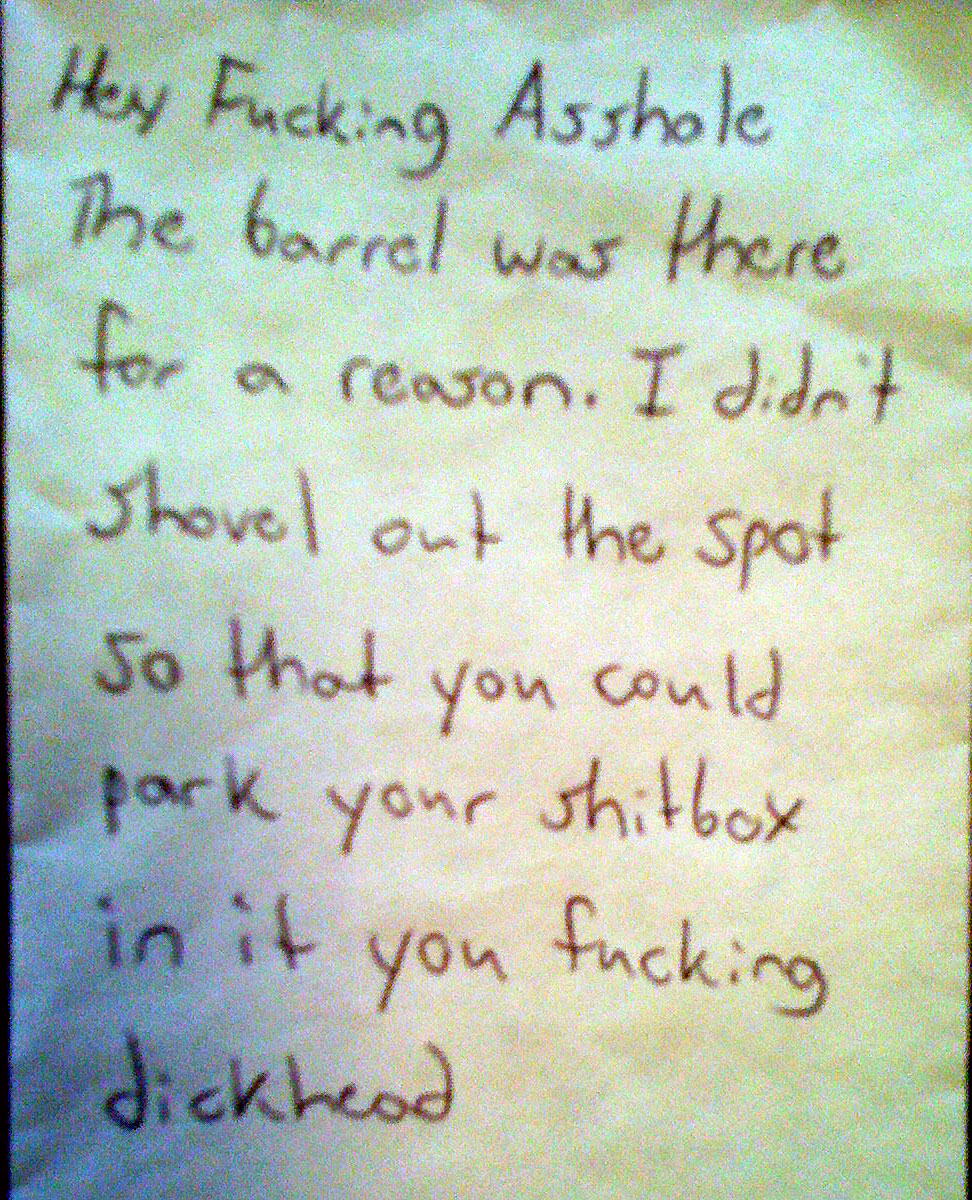 Hey Fucking Asshole
The barrel was there
for a reason. I didn't
shovel out the spot
so that you could
park your shitbox
in it you fucking
dickhead